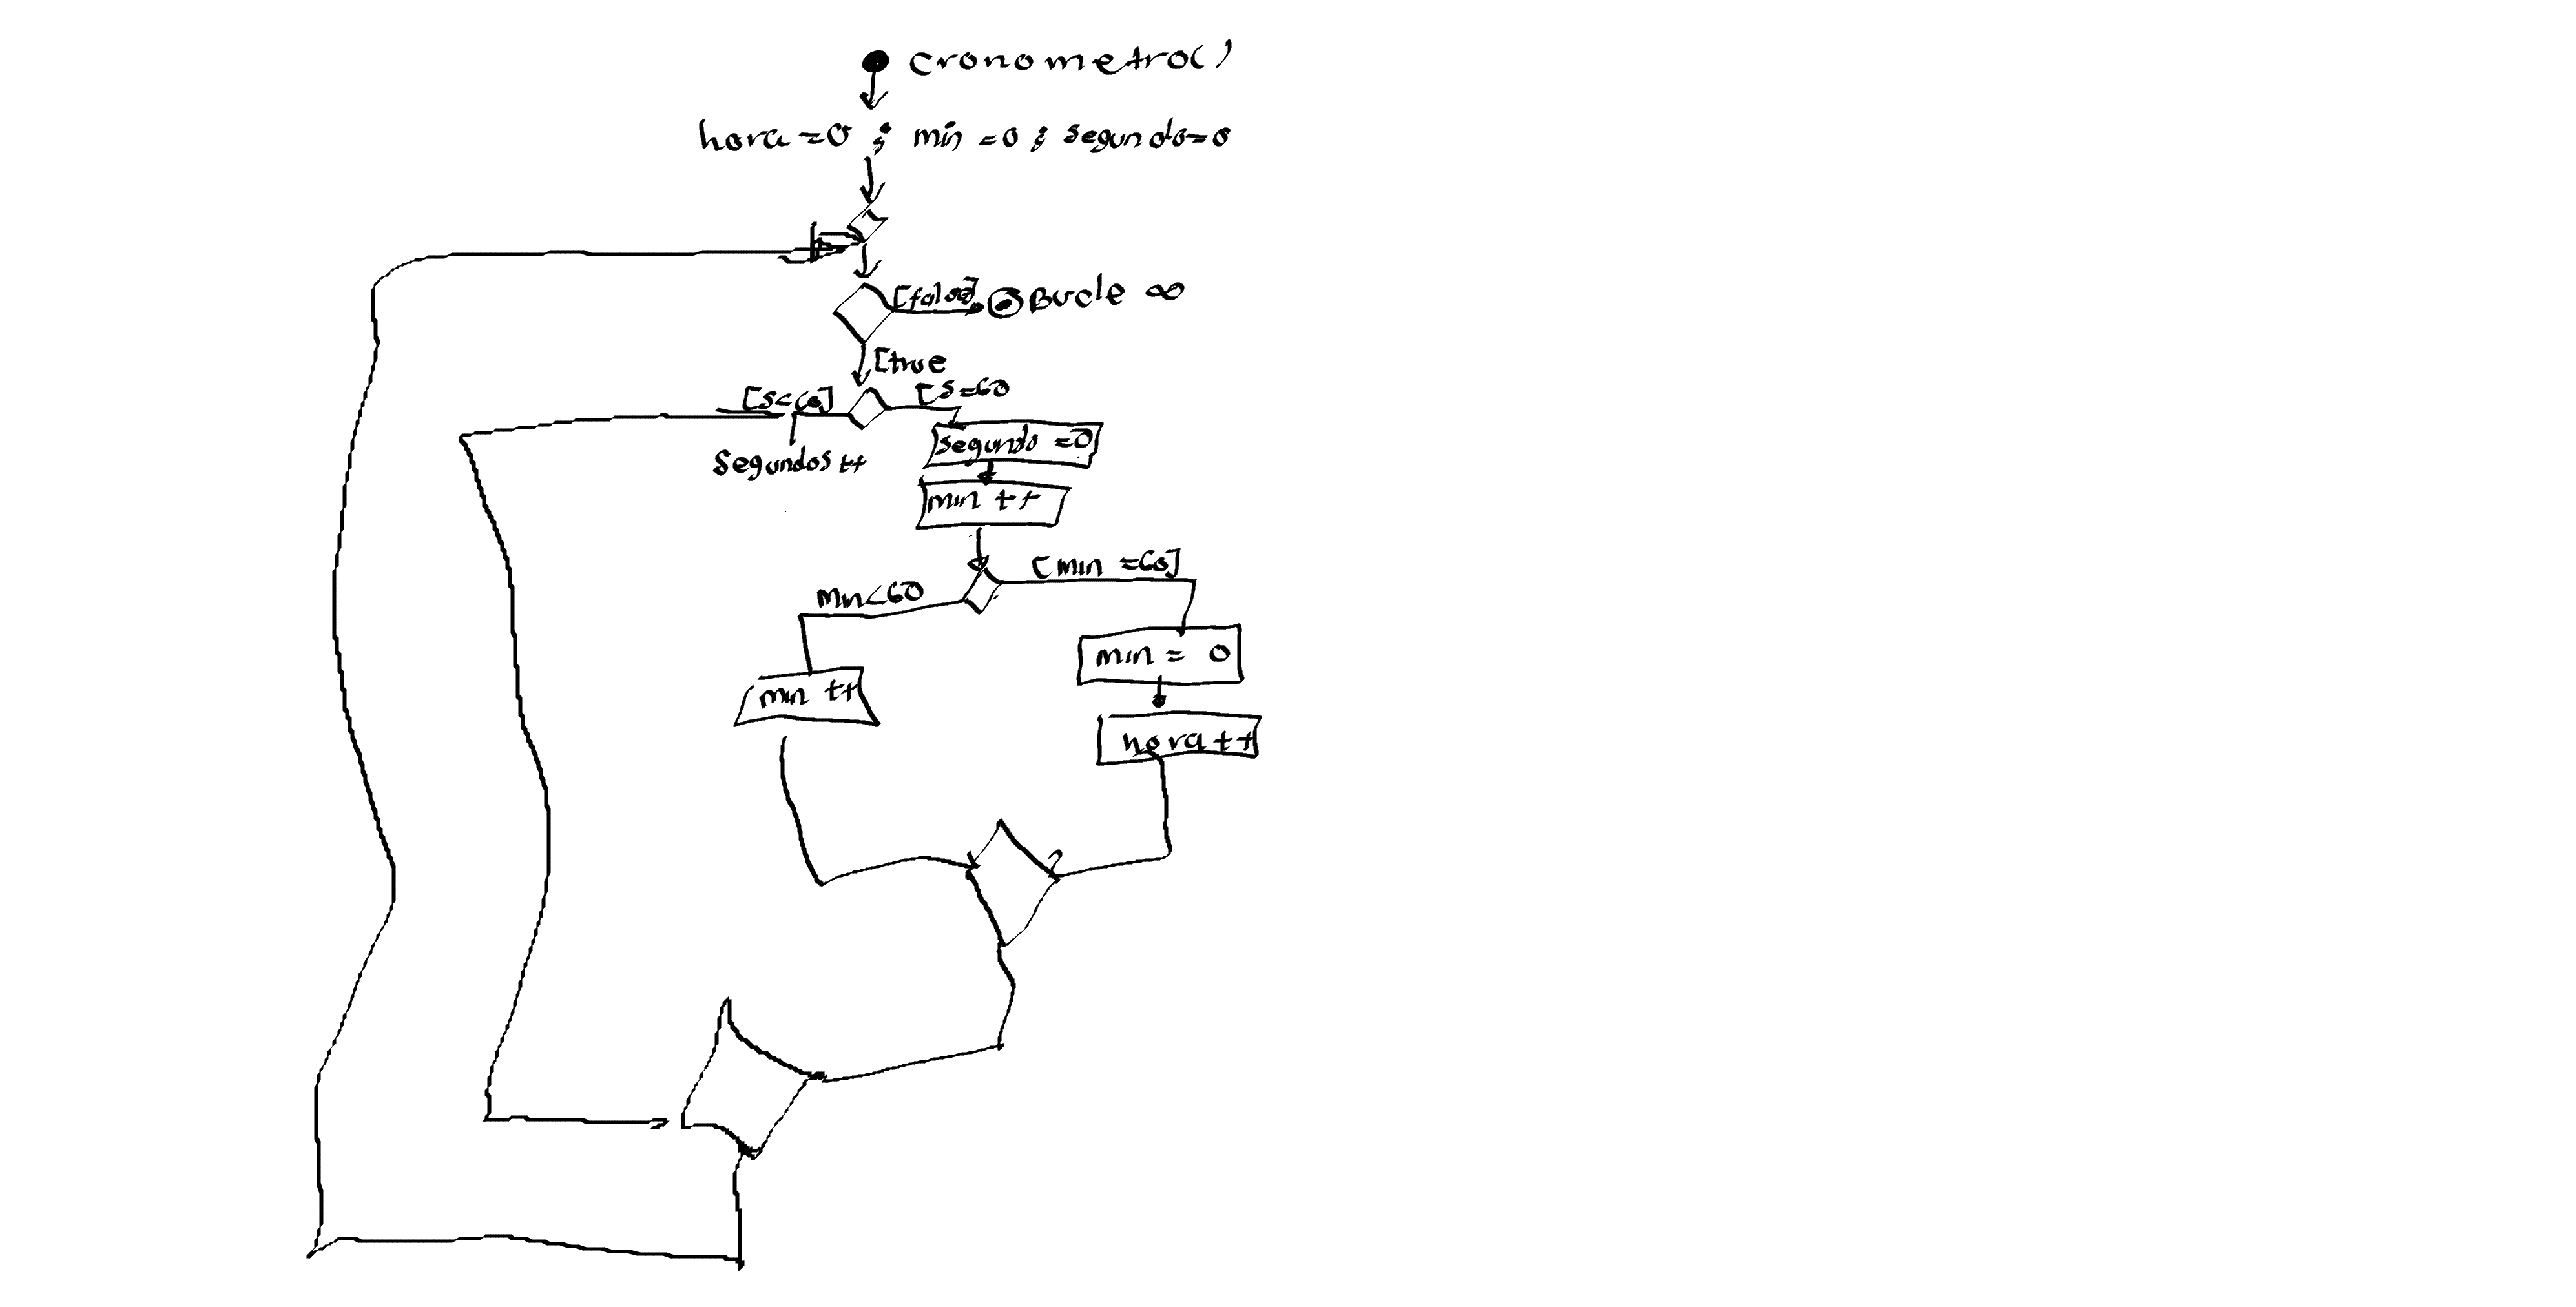 cronometro()
hora=0 ; min =0 ; segundo=0
[false] Bucle ∞
[true
[s<60] [s=60
segundo =0
Segundos ++
min ++
[min =60]
Min<60
min = 0
min ++
hora++